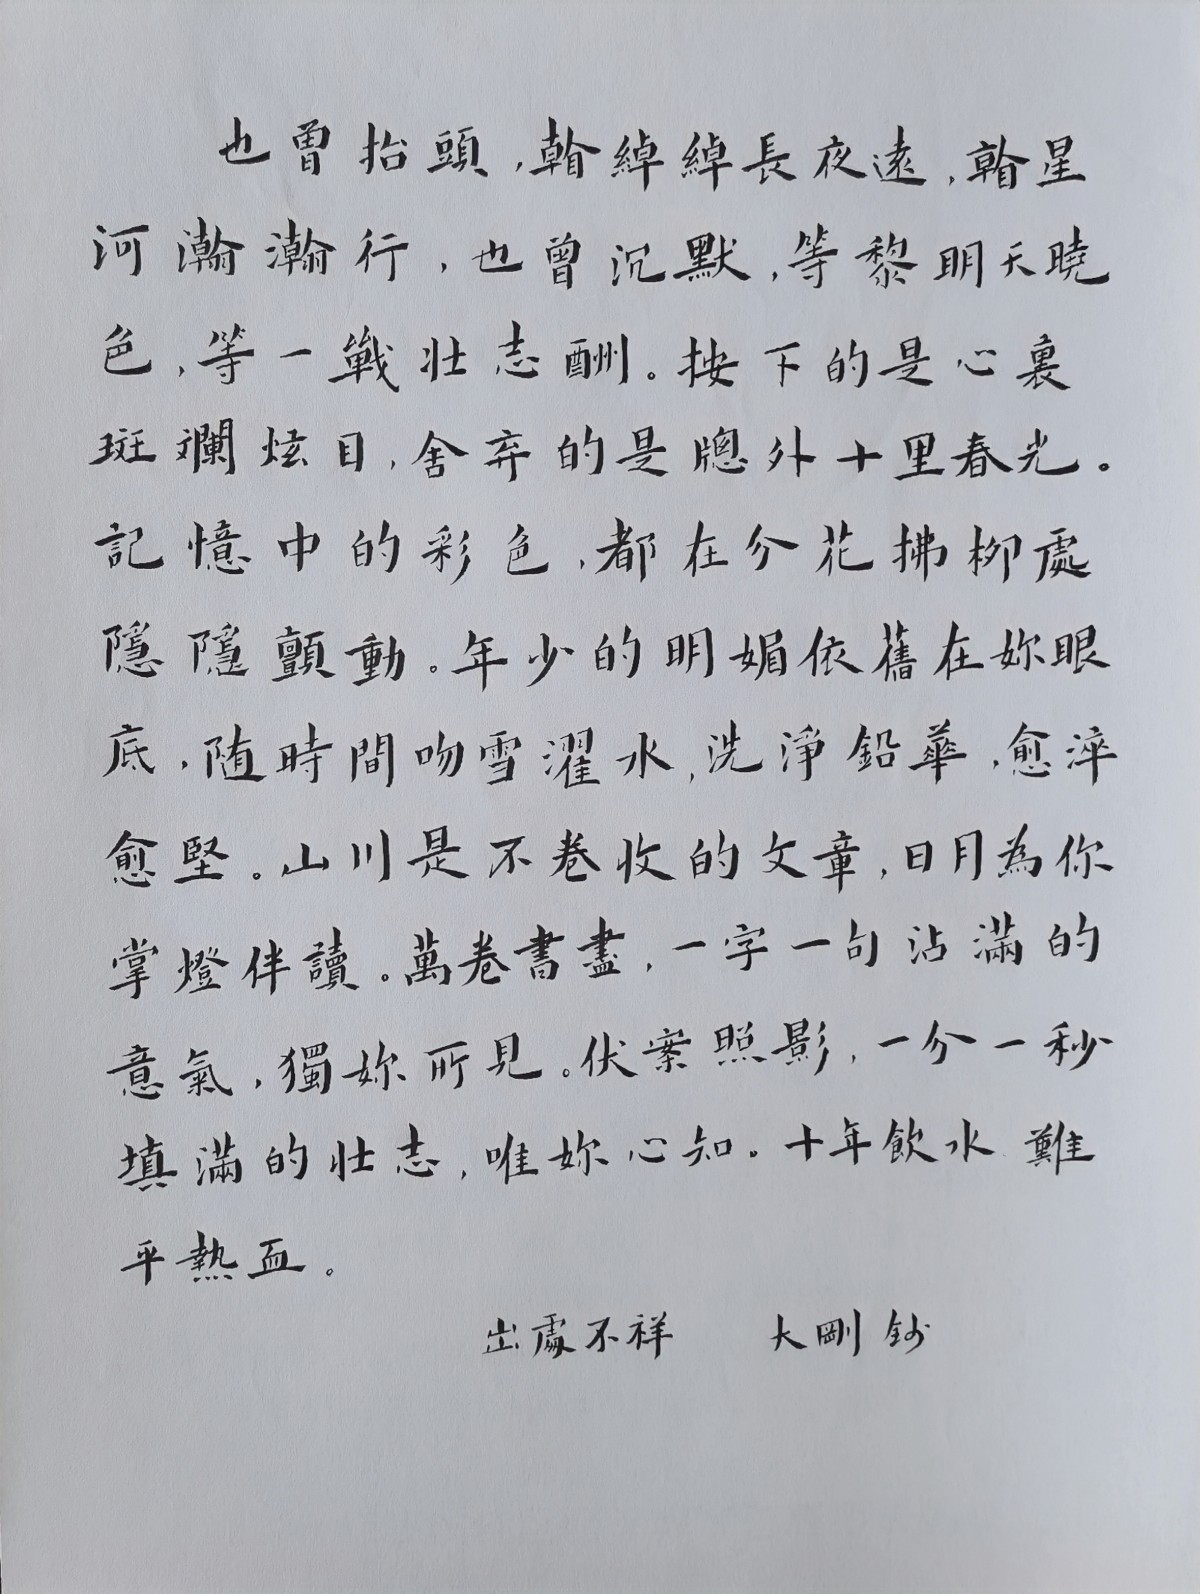 也曾抬頭，翰綽綽長夜遠，翰星
河瀚瀚行，也曾沉默，等黎明天曉
色，等一戰壯志酬。按下的是心裏
斑斕炫目，舍弃的是牕外十里春光。
記憶中的彩色，都在分花拂柳處
隱隱顫動。年少的明媚依舊在妳眼
底，随時間吻雪濯水，洗淨鉛華，愈淬
愈堅。山川是不卷收的文章，日月為你
掌燈伴讀。萬卷書盡，一字一句沾滿的
意氣，獨妳所見。伏案照影，一分一秒
填滿的壯志，唯妳心知。十年飲水難
平熱血。
出處不祥 大剛鈔